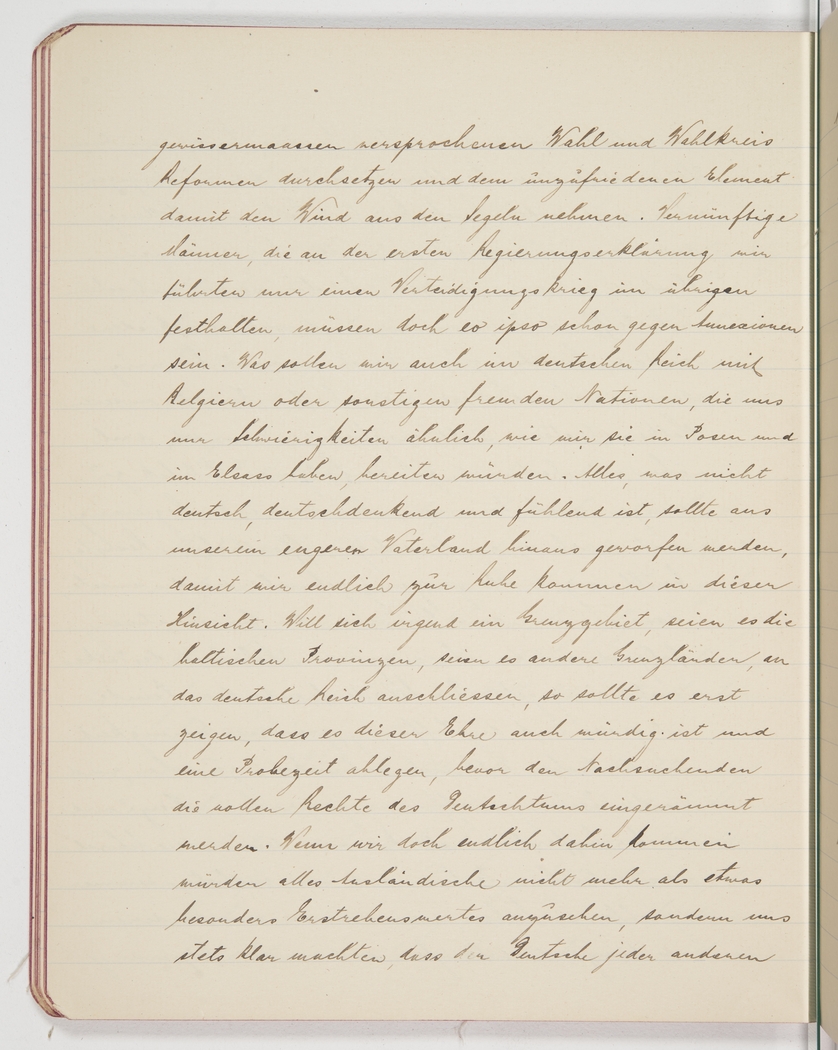 gewissermaassen versprochenen Wahl und Wahlkreis
Reformen durchsetzen und dem unzufriedenen Element
damit den Wind aus den Segeln nehmen. Vernünftige
Männer, die an der ersten Regierungserklärung wir
führten nur einen Verteidigungskrieg im übrigen
festhalten, müssen doch eo ipso schon gegen Annexionen
sein. Was sollen wir auch im deutschen Reich mit
Belgiern oder sonstigen fremden Nationen, die uns
nur Schwierigkeiten ähnlich, wie wir sie in Posen und
im Elsass haben, bereiten würden. Alles, was nicht
deutsch, deutschdenkend und fühlend ist, sollte aus
unserem engeren Vaterland hinaus geworfen werden,
damit wir endlich zur Ruhe kommen in dieser
Hinsicht. Will sich irgend ein Grenzgebiet, seien es die
baltischen Provinzen, seien es andere Grenzländer, an
das deutsche Reich anschliessen, so sollte es erst
zeigen, dass es dieser Ehre auch würdig ist und
eine Probezeit ablegen, bevor den Nachsuchenden
die vollen Rechte des Deutschtums eingeräumt
werden. Wenn wir doch endlich dahin kommen
würden alles Ausländische nicht mehr als etwas
besonders Erstrebenswertes anzusehen, sondern uns
stets klar machten, dass der Deutsche jeder anderen